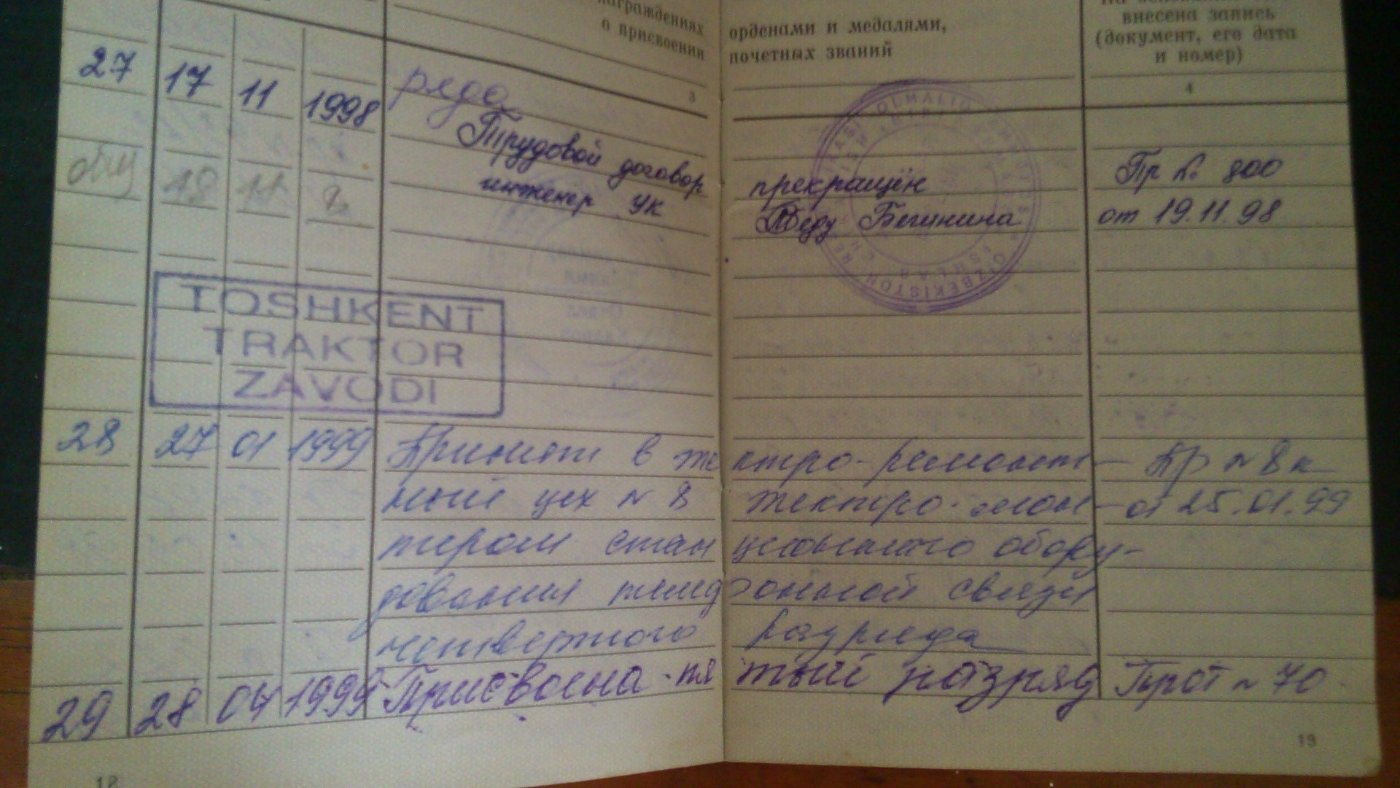 награждениях
о присвоении
орденами и медалями,
почетных званий
внесена запись
(документ, его дата
и номер)
3
4
27 17 11 1998 ряда
Трудовой договор прекращён Пр № 800
18 11
инженер УК от 19.11.98
TOSHKENT
TRAKTOR
ZAVODI
28 27 01 1999 Принят в электро-ремонт- Пр № 8к
ный цех № 8 электро-мон- от 25.01.99
тером станционного обору-
дования телефонной связи
четвертого разряда
29 28 04 1999 Присвоена пятый разряд Прот № 70
18
19